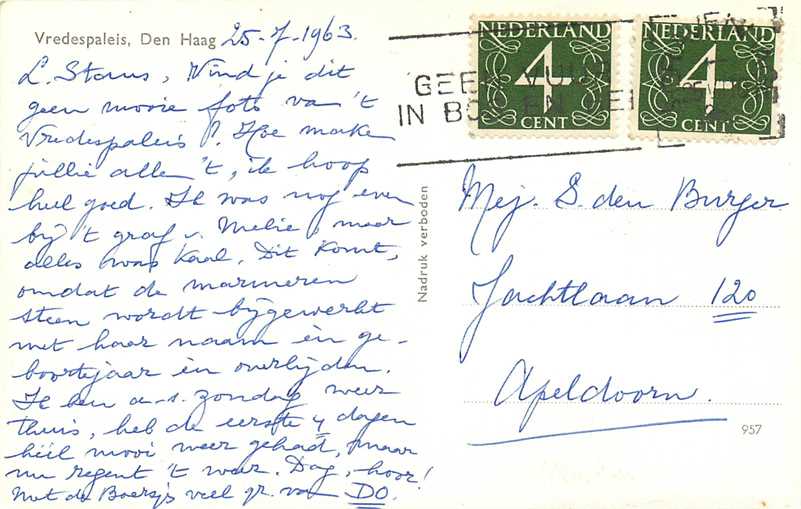 Vredespaleis, Den Haag 25-7-1963.
L. Stans, Vind je dit
geen mooie foto van 't
Vredespaleis? Hoe maken
jullie allen 't, ik hoop
heel goed. Ik was nog even
bij 't graf v. Melie, maar
alles was kaal. Dit komt,
omdat de marmeren
steen wordt bijgewerkt
met haar naam èn ge-
boortejaar èn overlijden.
Ik ben a.s. zondag weer
thuis, heb de eerste 4 dagen
héél mooi weer gehad, maar
nu regent 't weer. Dag, hoor!
Met de veel gr. van DO.
Nadruk verboden
NEDERLAND
4
CENT
NEDERLAND
4
CENT
GEEN
IN
Mej. S. den Burger
Jachtlaan 120
Apeldoorn.
957